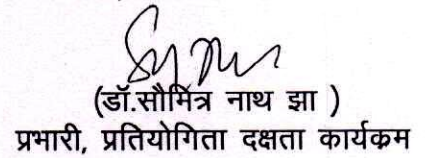 (डॉ.सौमित्र नाथ झा )
प्रभारी, प्रतियोगिता दक्षता कार्यक्रम